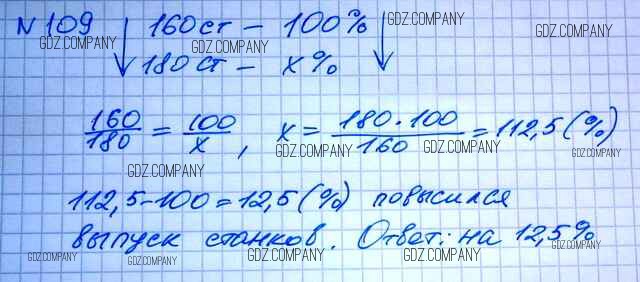 N 109 160 ст – 100%
GDZ.COMPANY GDZ.COMPANY GDZ.COMPANY
180 ст – x%
GDZ.COMPANY GDZ.COMPANY GDZ.COMPANY
160/180 = 100/x, x = 180·100/160 = 112,5 (%)
GDZ.COMPANY GDZ.COMPANY GDZ.COMPANY GDZ.COMPANY
112,5-100=12,5(%) повысился
GDZ.COMPANY GDZ.COMPANY GDZ.COMPANY
выпуск станков. Ответ: на 12,5%
GDZ.COMPANY GDZ.COMPANY GDZ.COMPANY GDZ.COMPANY